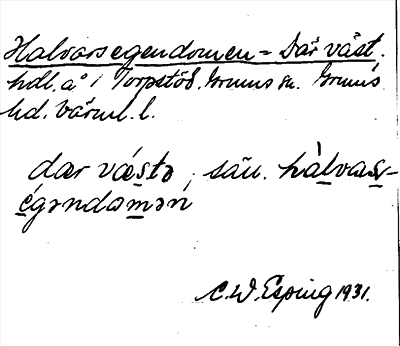 Halvarsegendomen = Där väst,
hdl. a° i Torpstöd. Grums sn. Grums
hd. Värml. l.
dær vǽstə, sän. hàlvas-
égəndomən
C. W. Esping 1931.